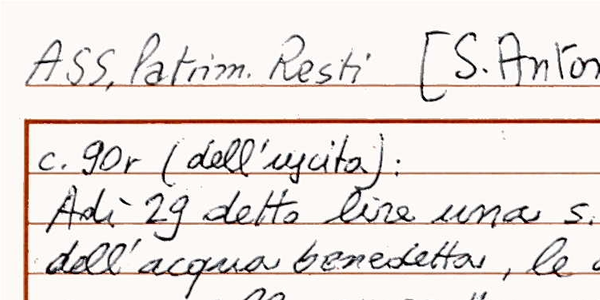 ASS, Patrim. Resti [S. Anton
c. 90r (dell'uscita):
Adì 29 detto lire una s.
dell'acqua benedetta, le